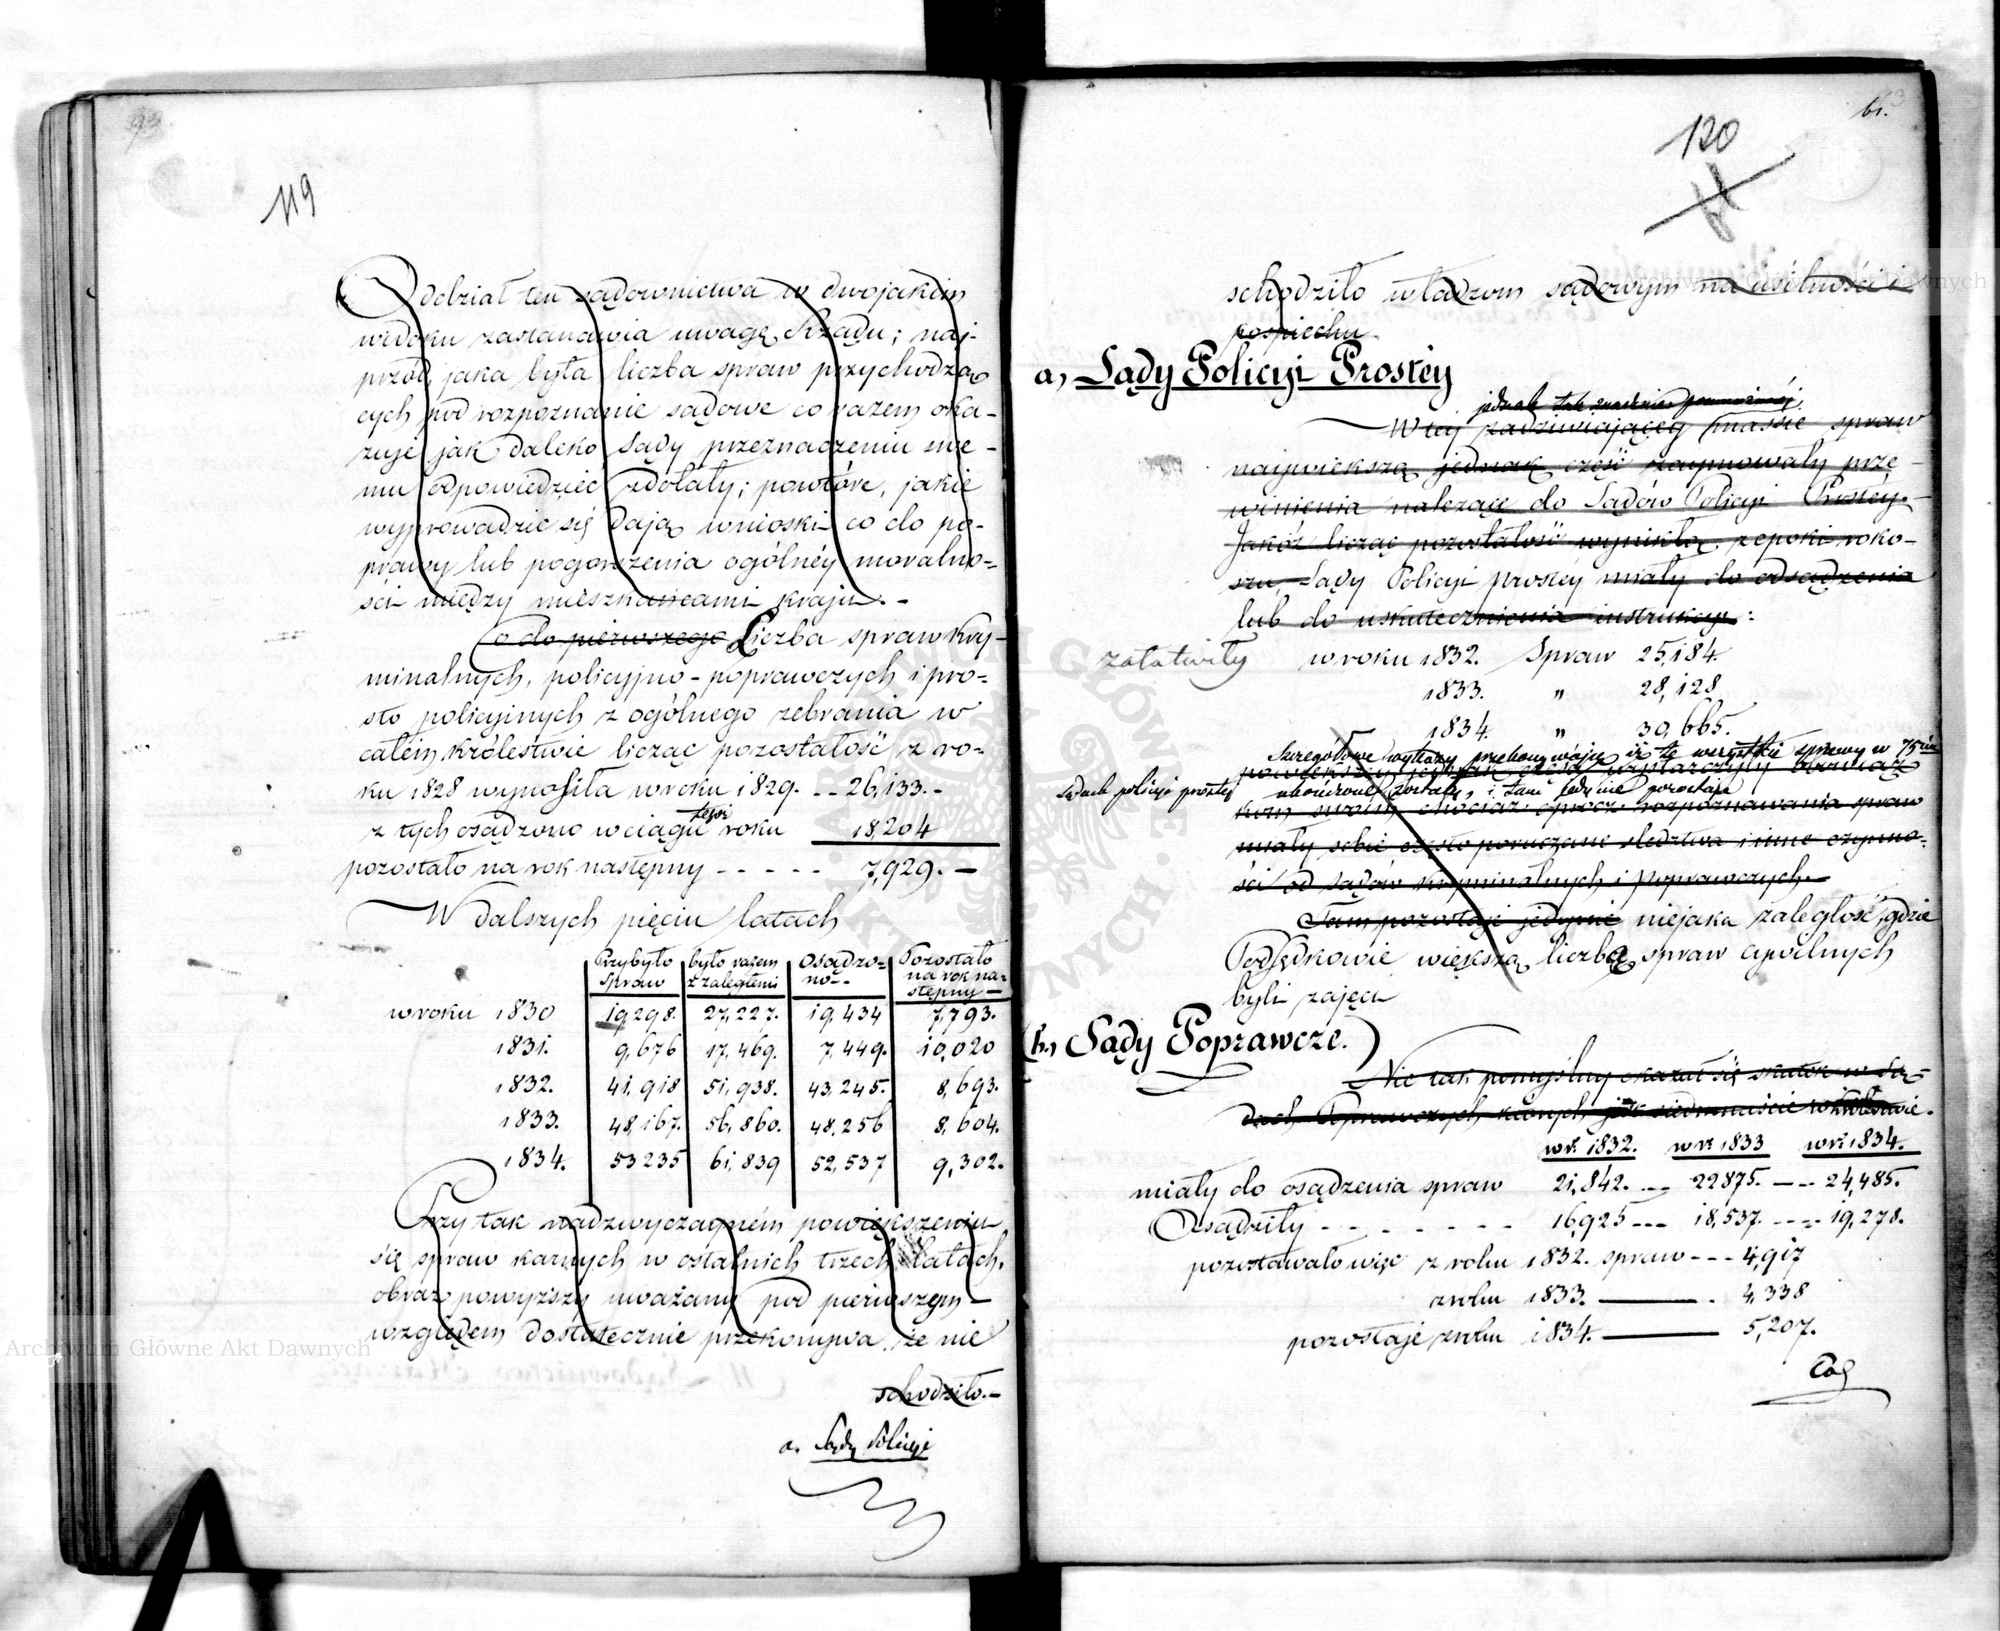 119
Oddział ten sądownictwa w dwojakim
widoku zastanawia uwagę Rządu; naj-
przód, jaka była liczba spraw przychodzą
cych pod rozpoznanie sądowe co razem oka-
zuje jak daleko Sądy przeznaczeniu swe-
mu odpowiedzieć zdołały; powtóre, jakie
wyprowadzić się dają wnioski co do po-
prawy lub pogorszenia ogólnéy moralno=
ści między mieszkańcami kraju.-
Co do pierwszego Liczba spraw kry-
minalnych, policyjno-poprawczych i pro=
sto policyinych z ogólnego zebrania w
całem Królestwie licząc pozostałość z ro=
ku 1828 wynosiła w roku 1829. -- 26,133.-
z tych osądzono w ciągu tegoż roku 18,204
pozostało na rok następny ----- 7,929.-
W dalszych pięciu latach
Przybyło Spraw było razem z zaległemi Osądzo=no-- Pozostało na rok na=stępny-
w roku 1830 19,298. 27,227. 19,434 7,793.
1831. 9,676 17,469. 7,449. 10,020
1832. 41,918 51,938. 43,245. 8,693.
1833. 48,167. 56,860. 48,256 8,604.
1834. 53235 61,839 52,537 9,302.
Przy tak nadzwyczayném powiększeniu
się spraw karnych w ostatnich trzech latach,
obraz powyższy uważany pod pierwszym-
względem dostatecznie przekonywa, że nie
schodziło.-
a, Sądy Policyi
61.
120
schodziło władzom sądowym na usilności i
pospiechu.
a, Sądy Policyi Prostéy
jednak tak znacznie pomnożonéj
W téj zadziwiającéy massie spraw
największą jednak część zaymowały prze-
winienia należące do Sądów Policyi Prostéy.-
Jakóż licząc pozostałość wynikłą z epoki roko-
szu, Sądy Policyi prostéy miały do osądzenia
lub do uskutecznienia instrukcyi:
załatwiły w roku 1832. Spraw 25,184.
1833. " 28,128
1834. " 30,665.
Szczegółowe wykazy przekonywają iż te wszystkie sprawy w 75ciu
powiększéy jednak części wystarczyły obowiąz
Sądach policyi prostéy ukończone zostały, i tam jedynie pozostaje
kom swoim chociaż oprócz rozpoznawania spraw
miały sobie często poruczane śledztwa i inne czynno-
ści od sądów kryminalnych i Poprawczych.-
Tam pozostaje jedynie niejaka zaległość, gdzie
Podsędkowie większą liczbą spraw cywilnych
byli zajęci
b., Sądy Poprawcze.
Nie tak pomyślny okazał się skutek w Są-
dach Poprawczych których jest siedmnaście w Królestwie.
w r. 1832. w r. 1833 w r. 1834.
miały do osądzenia spraw 21,842. -- 22875. --- 24,485.
Osądziły - - - - - - - 16,925 --- 18,537. ---- 19,278.
pozostawało więc z roku 1832. spraw --- 4,917
z roku 1833. ——— . 4,338
pozostaje z roku 1834. ——— 5,207.
Archiwum Główne Akt Dawnych
Archiwum Główne Akt Dawnych